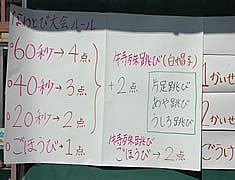 なわとび大会ルール
○60秒→4点
○40秒→3点
○20秒→2点
○ごほうび→1点
特殊跳び(白帽子)
+2点
片足跳び
あや跳び
うしろ跳び
特殊跳び
ごほうび→2点
1かいせ
2かいせ
ごうけ